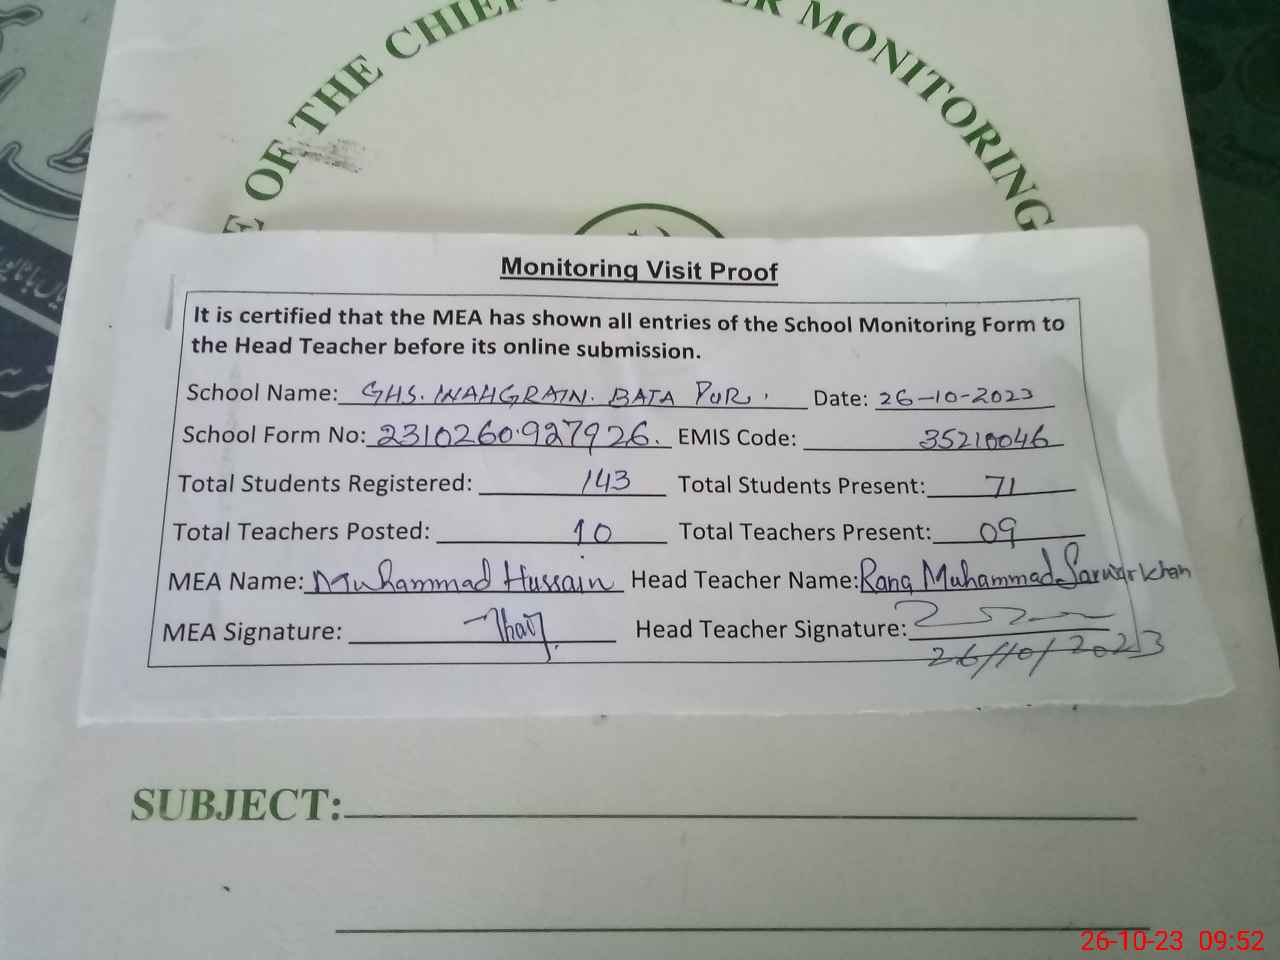 OF THE CHIEF MONITORING
Monitoring Visit Proof
It is certified that the MEA has shown all entries of the School Monitoring Form to
the Head Teacher before its online submission.
School Name: GHS. WAHGRAIN. BATA PUR. Date: 26-10-2023
School Form No: 2310260927926. EMIS Code: 35210046
Total Students Registered: 143 Total Students Present: 71
Total Teachers Posted: 10 Total Teachers Present: 09
MEA Name: Muhammad Hussain Head Teacher Name: Rana Muhammad Sarwar Khan
MEA Signature: Head Teacher Signature:
26/10/2023
SUBJECT:
26-10-23 09:52